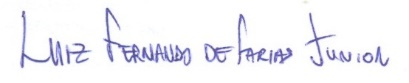 Luiz Fernando de Farias Junior